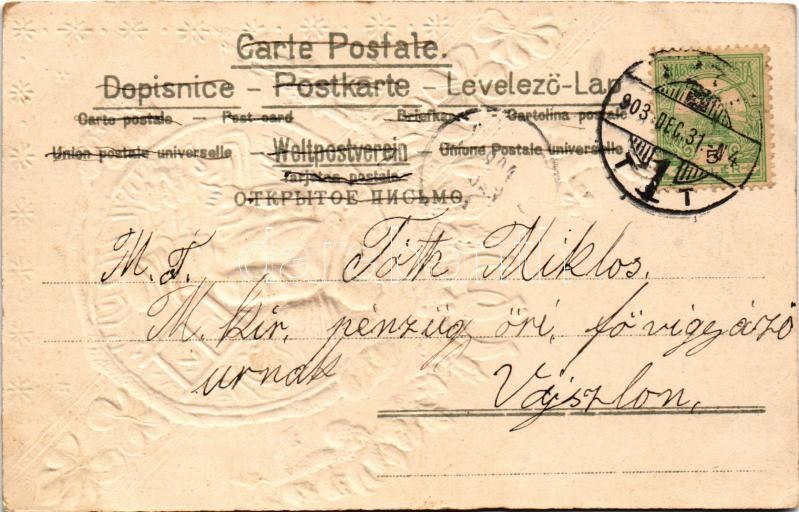 Carte Postale.
Dopisnice – Postkarte – Levelező-Lap
Carte postale – Post-card Briefkaart – Cartolina postale
Union postale universelle – Weltpostverein – Unione Postale universelle
Tarjetas postale
ОТКРЫТОЕ ПИСЬМО,
903 DEC. 31. N 4
1
T T
M. T. Tóth Miklos.
M. kir. pénzüg őri, fővigyázó
urnak Vajszlon.
darabanth